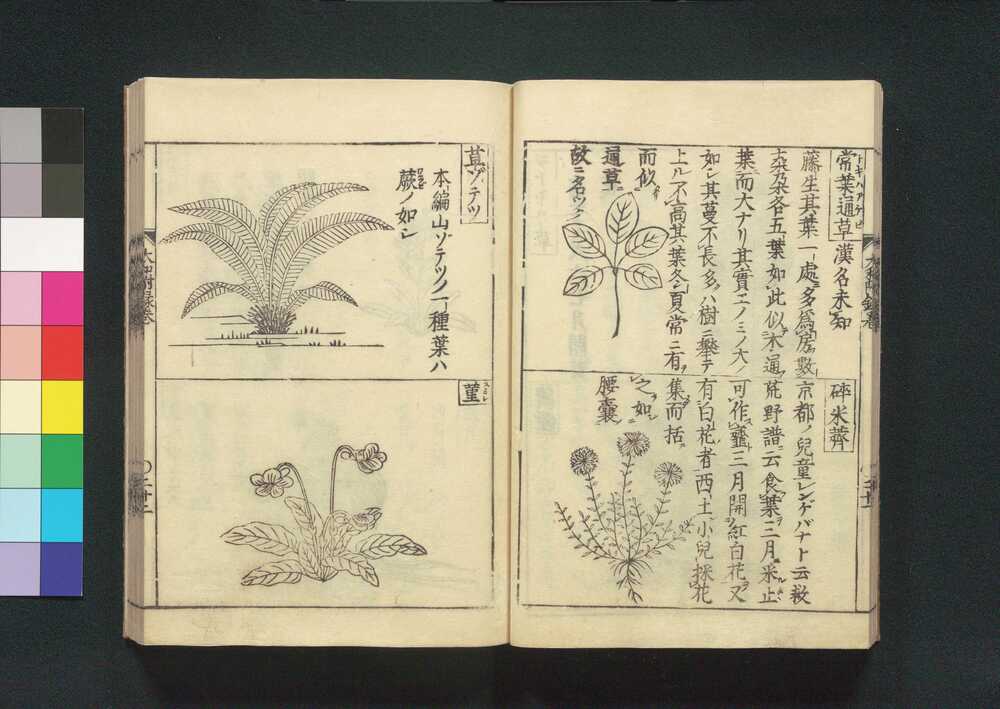 常葉通草漢名未知
トキハアケビ
藤生其葉一處ニ多ク為房數
朶朶各五葉如此似木通ノ
葉而大ナリ其實エノミノ大ノ
如シ其蔓不長多ハ樹ニ攀テ
上ル不高其葉冬夏常ニ有リ
而似
通草ニ
故ニ名ツク
砕米薺
京都ノ兒童レンゲバナト云救
荒野譜ニ云食葉三月采止
可作虀三月開紅白花ヲ又
有白花者西土小兒採花ヲ
集而括
之如
腰嚢
草ソテツ
本編山ソテツノ一種葉ハ
蕨ノ如シ
ワラビ
菫
スミレ
大和附録巻
〇二十二